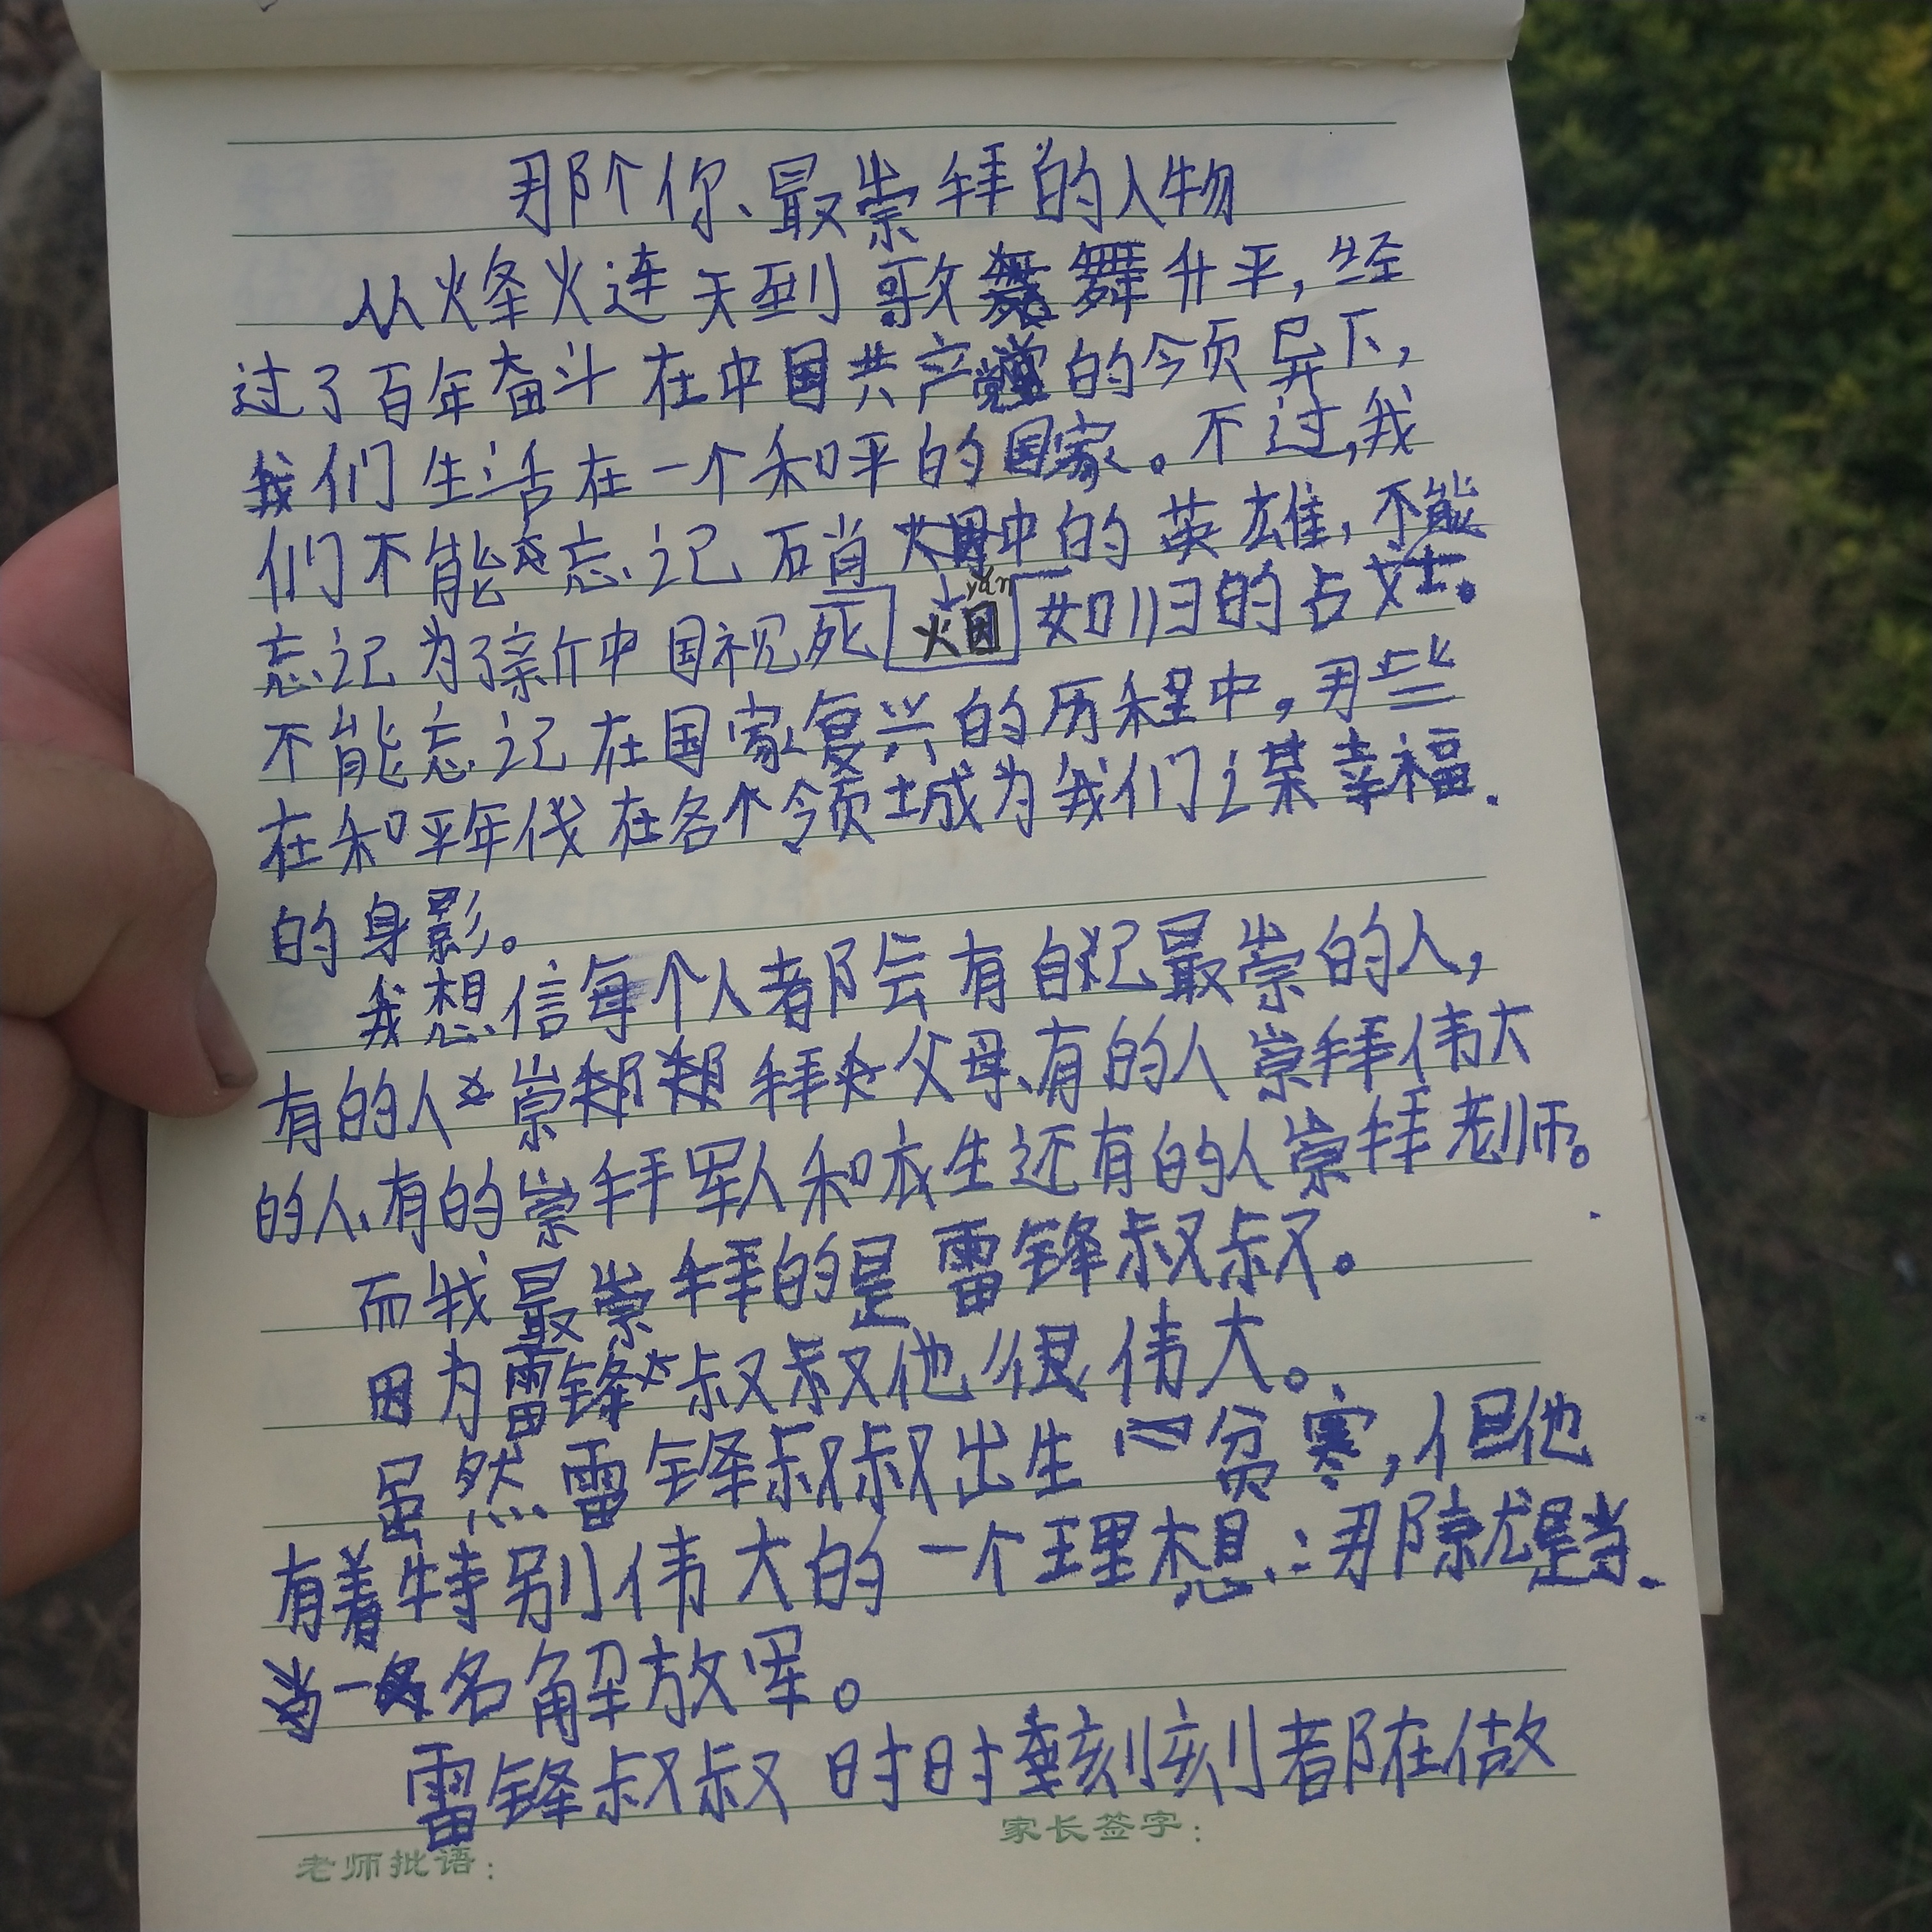 那个你、最崇拜的人物
从烽火连天到歌舞升平,经
过了百年奋斗在中国共产党的领导下,
我们生活在一个和平的国家。不过,我
们不能忘记硝烟中的英雄,不能
yān
忘记为了新中国视死[烟]如归的战士。
不能忘记在国家复兴的历程中,那些
在和平年代在各个领域成为我们谋幸福.
的身影。
我想信每个人都会有自己最崇的人,
有的人崇拜父母、有的人崇拜伟大
的人、有的崇拜军人和衣生还有的人崇拜老师。
而我最崇拜的是雷锋叔叔。
因为雷锋叔叔他很伟大。
虽然雷锋叔叔出生贫寒,但他
有着特别伟大的一个理想:那就是当
一名解放军。
雷锋叔叔时时刻刻都在做
老师批语: 家长签字: